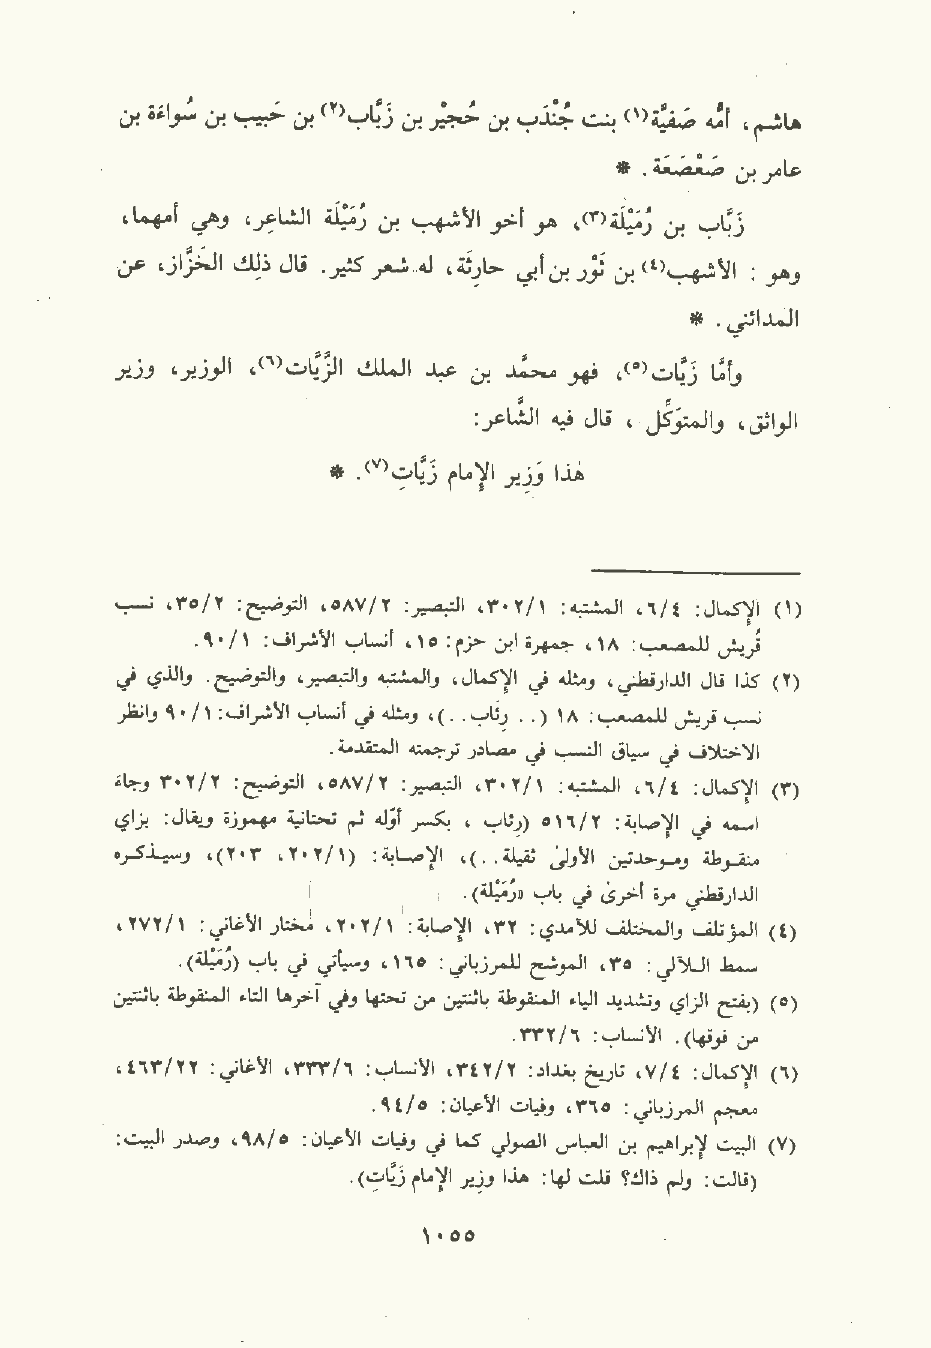 هاشم، أمّه صَفيّة(١) بنت جُنْدَب بن حُجيْر بن زَبّاب(٢) بن حَبيب بن سُواءَة بن
عامر بن صَعْصَعَة. *
زَبّاب بن رُمَيْلَة(٣)، هو أخو الأشهب بن رُمَيْلَة الشاعِر، وهي أمهما،
وهو : الأشهب(٤) بن ثَوْر بن أبي حارِثَة، له شعر كثير. قال ذلِك الخَزّاز، عن
المدائني. *
وأمّا زَيّات(٥)، فهو محمّد بن عبد الملك الزَّيّات(٦)، الوزير، وزير
الواثق، والمتوَكِّل ، قال فيه الشّاعر:
هٰذا وَزِير الإمام زَيّاتِ(٧). *
(١) الإكمال: ٦/٤، المشتبه: ٣٠٢/١، التبصير: ٥٨٧/٢، التوضيح: ٣٥/٢، نسب
قُريش للمصعب: ١٨، جمهرة ابن حزم: ١٥، أنساب الأشراف: ٩٠/١.
(٢) كذا قال الدارقطني، ومثله في الإكمال، والمشتبه والتبصير، والتوضيح. والذي في
نسب قريش للمصعب: ١٨ (.. رِئاب..)، ومثله في أنساب الأشراف: ٩٠/١ وانظر
الاختلاف في سياق النسب في مصادر ترجمته المتقدمة.
(٣) الإكمال: ٦/٤، المشتبه: ٣٠٢/١، التبصير: ٥٨٧/٢، التوضيح: ٣٠٢/٢ وجاء
اسمه في الإصابة: ٥١٦/٢ (رِئاب ، بكسر أوّله ثم تحتانية مهموزة، ويقال: بزاي
منقوطة وموحدتين الأولىٰ ثقيلة..)، الإصابة: (٢٠٢/١، ٢٠٣)، وسيذكره
الدارقطني مرة أخرىٰ في باب «رُمَيْلة).
(٤) المؤتلف والمختلف للآمدي: ٣٢، الإصابة: ٢٠٢/١، مختار الأغاني: ٢٧٢/١،
سمط اللآلي: ٣٥، الموشح للمرزباني: ١٦٥، وسيأتي في باب (رُمَيْلة).
(٥) (بفتح الزاي وتشديد الياء المنقوطة باثنتين من تحتها وفي آخرها التاء المنقوطة باثنتين
من فوقها). الأنساب: ٣٣٢/٦.
(٦) الإكمال: ٧/٤، تاريخ بغداد: ٣٤٢/٢، الأنساب: ٣٣٣/٦، الأغاني: ٤٦٣/٢٢،
معجم المرزباني: ٣٦٥، وفيات الأعيان: ٩٤/٥.
(٧) البيت لإبراهيم بن العباس الصولي كما في وفيات الأعيان: ٩٨/٥، وصدر البيت:
(قالت: ولم ذاك؟ قلت لها: هذا وزِير الإمام زَيّاتِ).
١٠٥٥